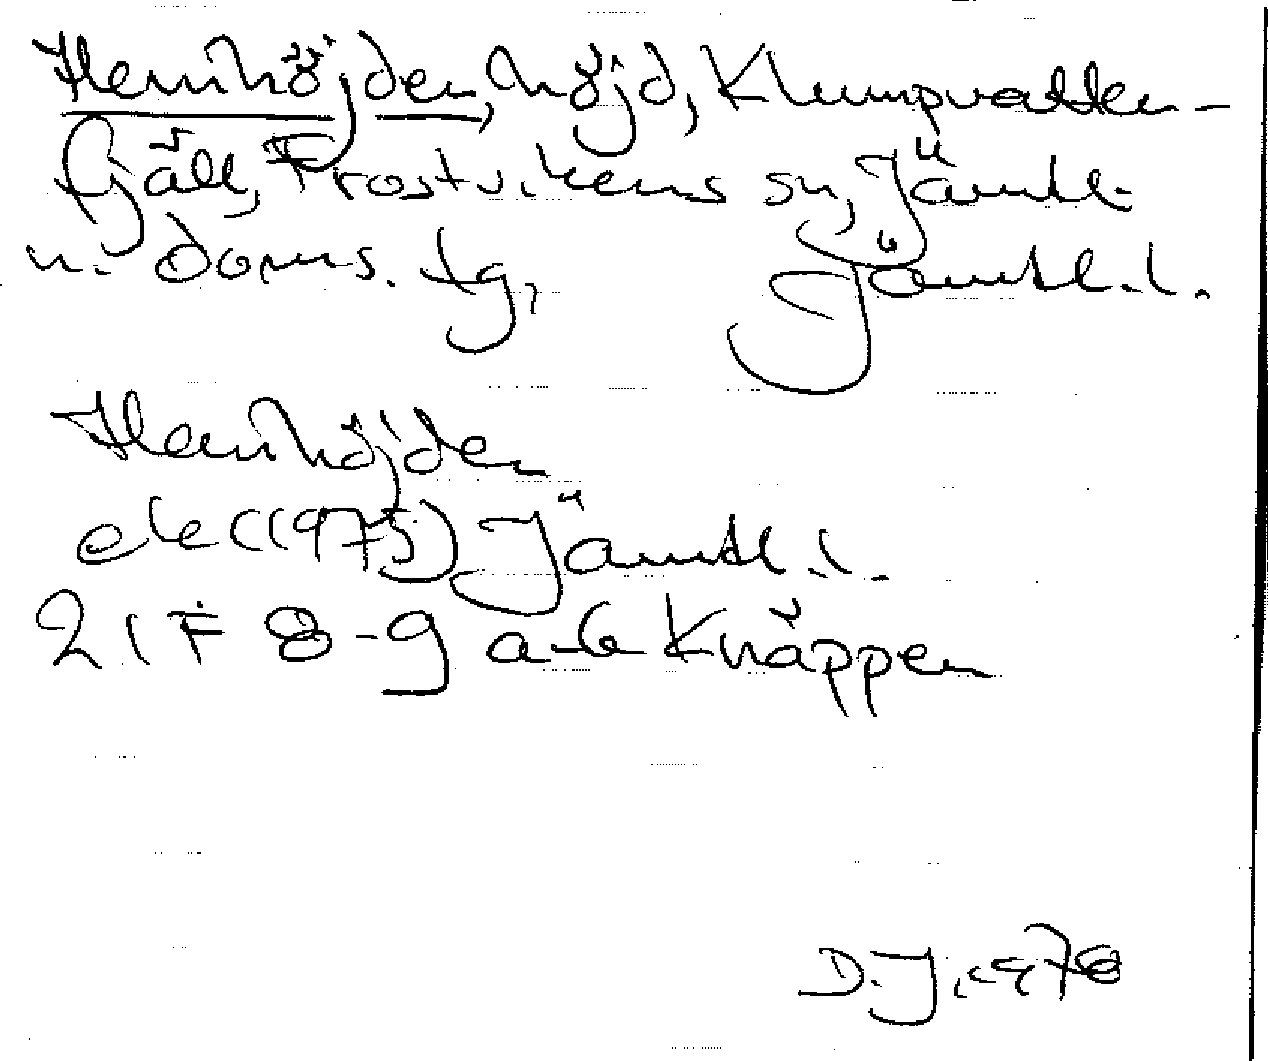 Hemhöjden, höjd, Klumpvatten-
fjäll, Frostvikens sn, Jämtl.
n. doms. tg, Jämtl. l.
Hemhöjden
ek (1975) Jämtl. l.
21 F 8-9 a-b Knäppen
D. J. 1978